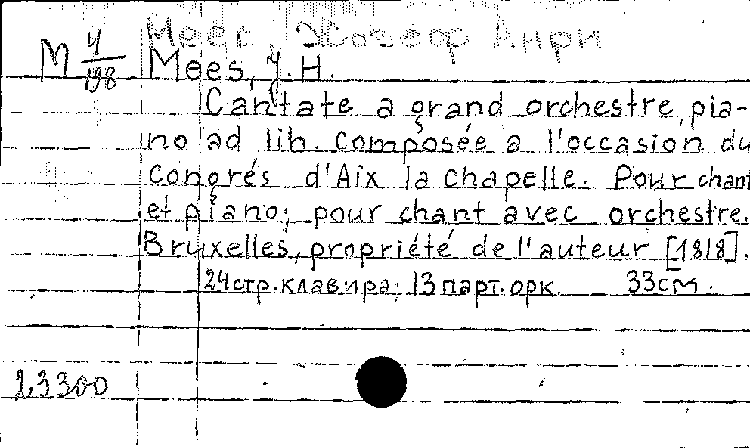 Меес, Жозеф Анри
М 4/198 Mees, J. H.
Cantate a grand orchestre, pia-
no ad lib. composée a l'occasion du
Congrés d'Aix la chapelle. Pour chant
et piano; pour chant avec orchestre.
Bruxelles, propriété de l'auteur [1818].
24 стр. клавира; 13 парт. орк 33 см.
23300